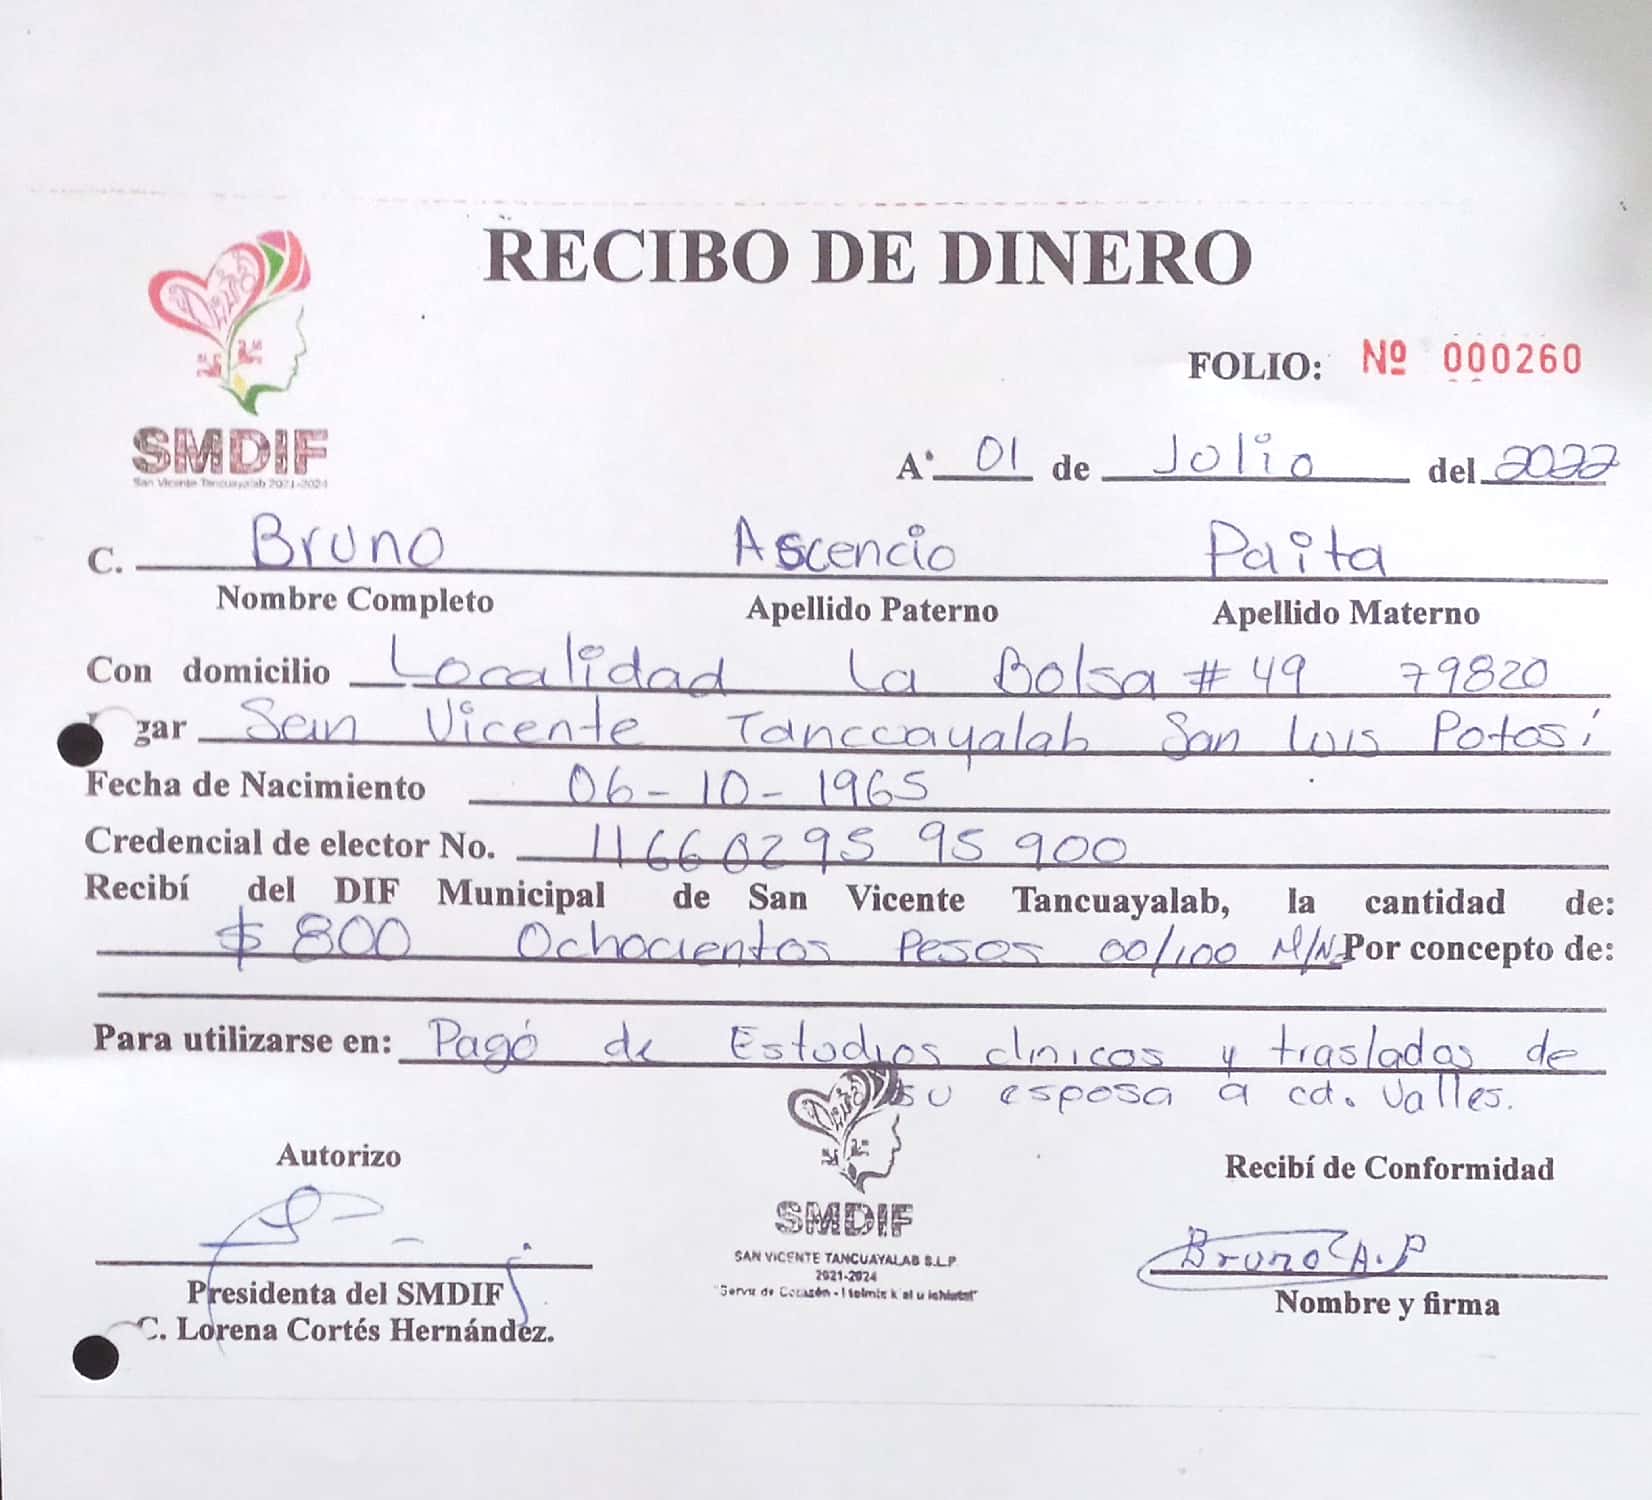 RECIBO DE DINERO
FOLIO: Nº 000260
SMDIF
San Vicente Tancuayalab 2021-2024
A· 01 de Jolio del 2022
C. Bruno Ascencio Paita
Nombre Completo Apellido Paterno Apellido Materno
Con domicilio Localidad La Bolsa # 49 79820
gar San Vicente Tanccayalab San Luis Potosí
Fecha de Nacimiento 06-10-1965
Credencial de elector No. 11660295 95 900
Recibí del DIF Municipal de San Vicente Tancuayalab, la cantidad de:
$ 800 Ochocientos Pesos 00/100 M/N Por concepto de:
Para utilizarse en: Pagó de Estudios clinicos y traslados de
su esposa a cd. Valles.
Autorizo
Recibí de Conformidad
SMDIF
SAN VICENTE TANCUAYALAB S.L.P.
2021-2024
"Servir de Corazón -
Bruno A.P
Presidenta del SMDIF
C. Lorena Cortés Hernández.
Nombre y firma